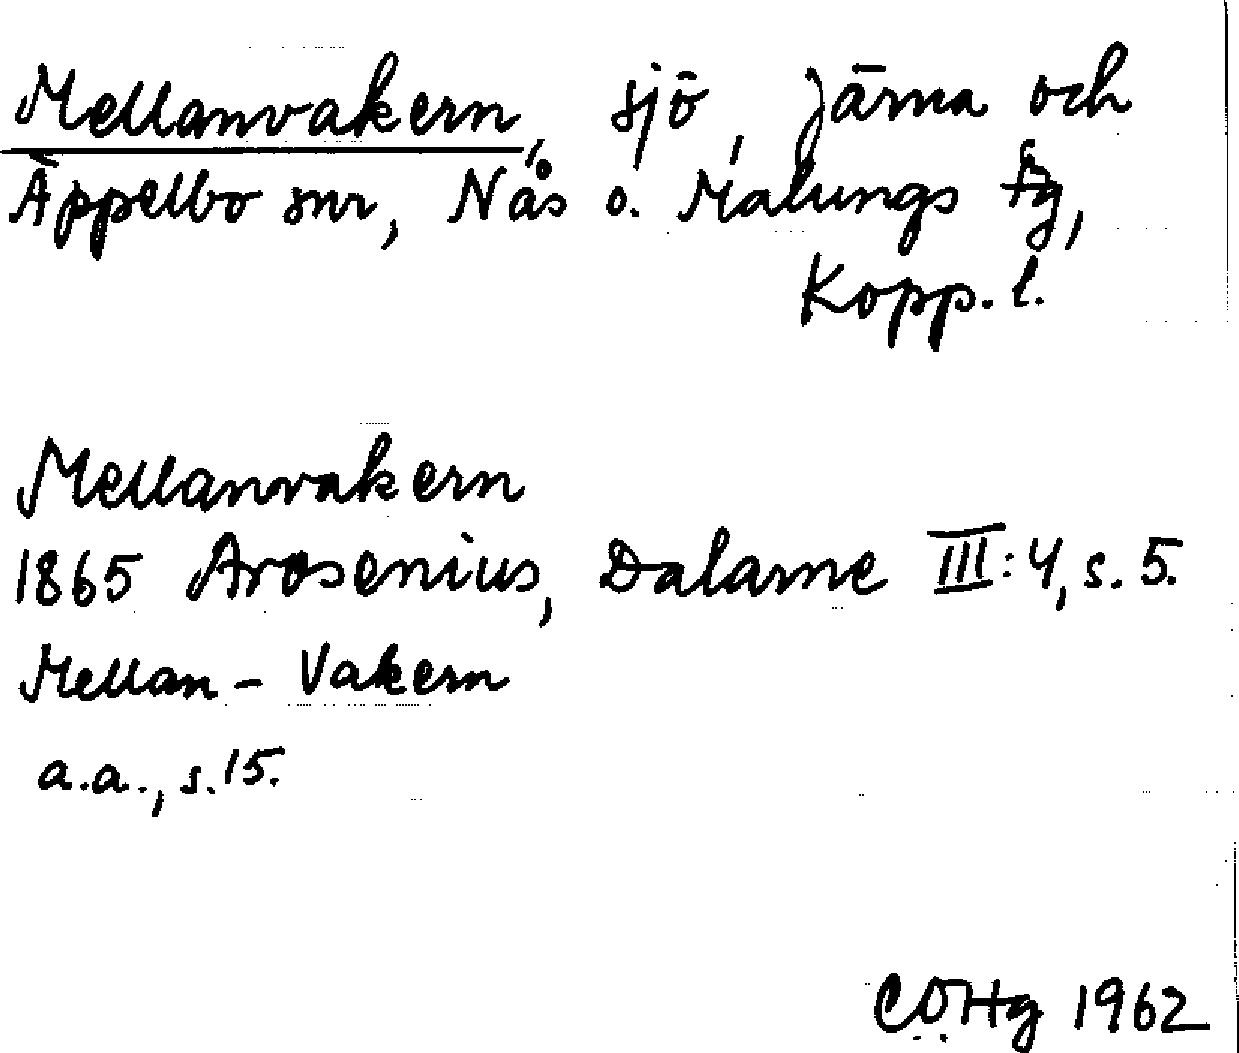 Mellanvakern, sjö, Järna och
Äppelbo snr, Nås o. Malungs fg,
Kopp. l.
Mellanvakern
1865 Arosenius, Dalarne III:4, s. 5.
Mellan-Vakern
a.a., s. 15.
CÖHg 1962